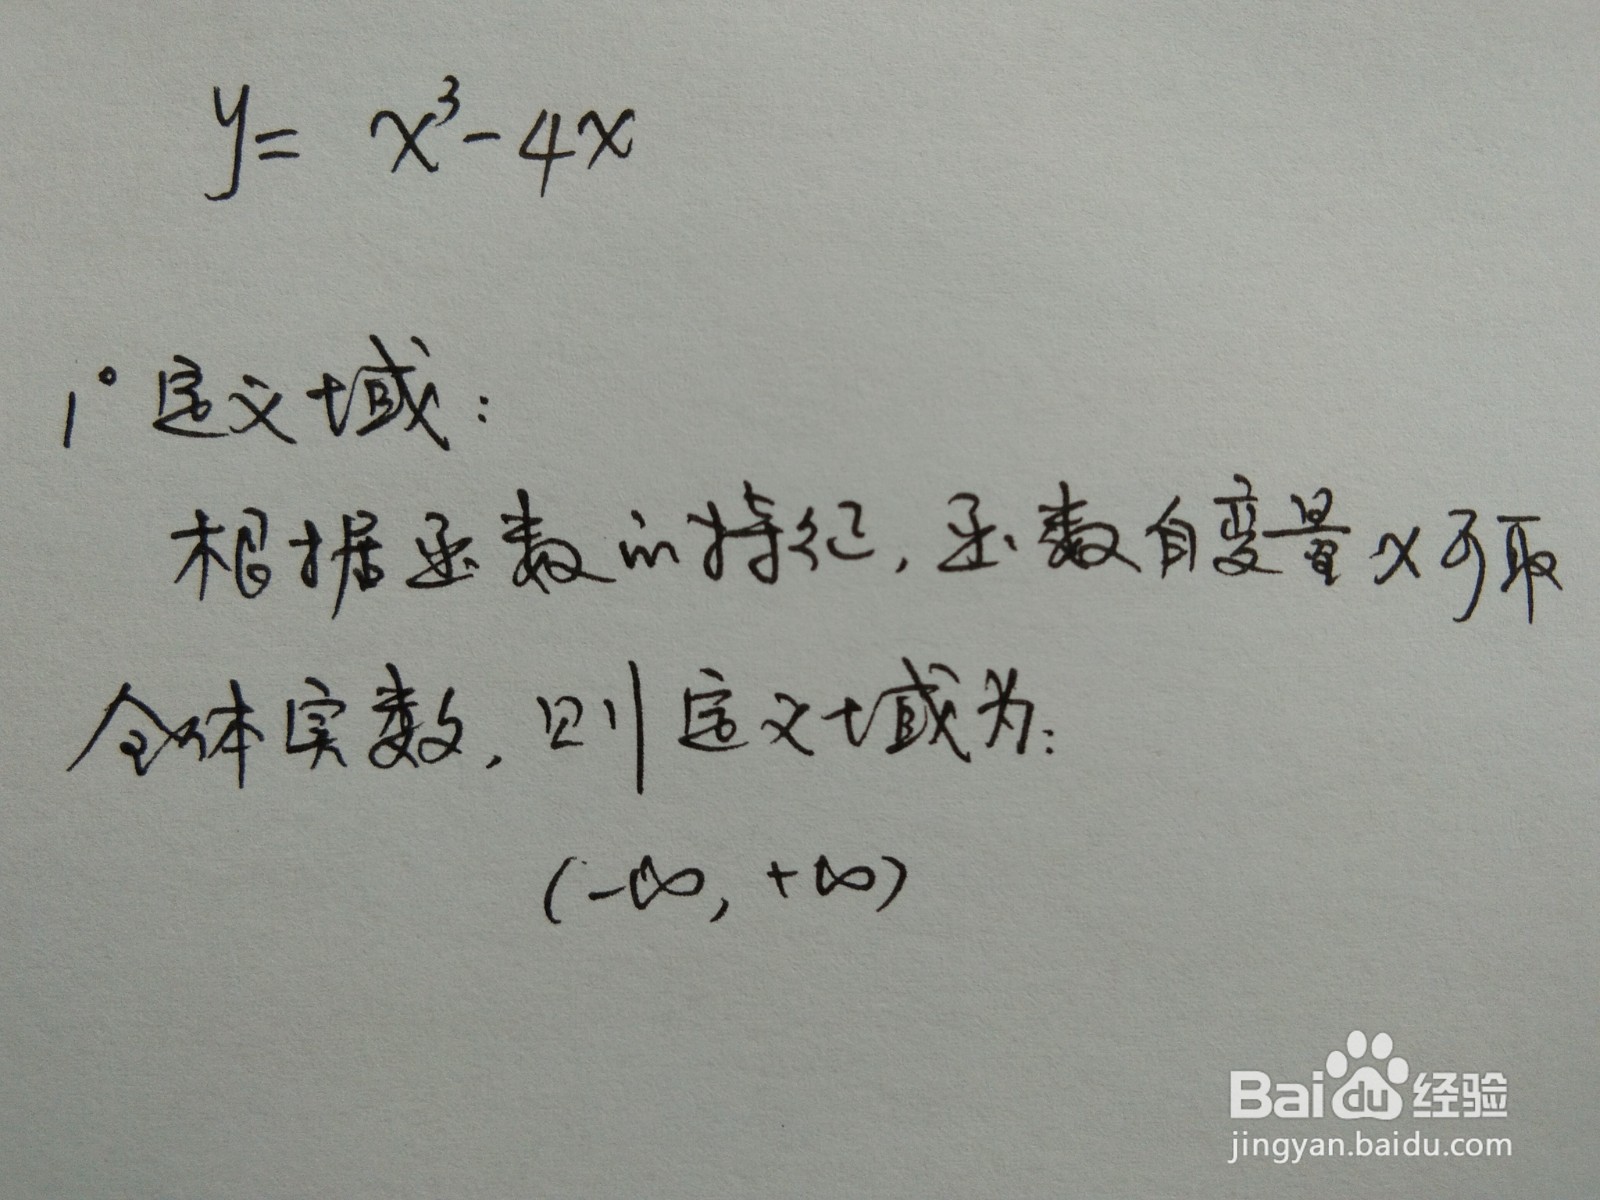 y= x³-4x
1° 定义域:
根据函数的特征,函数自变量x可取
全体实数,则定义域为:
(-∞, +∞)
Bai du 经验
jingyan.baidu.com